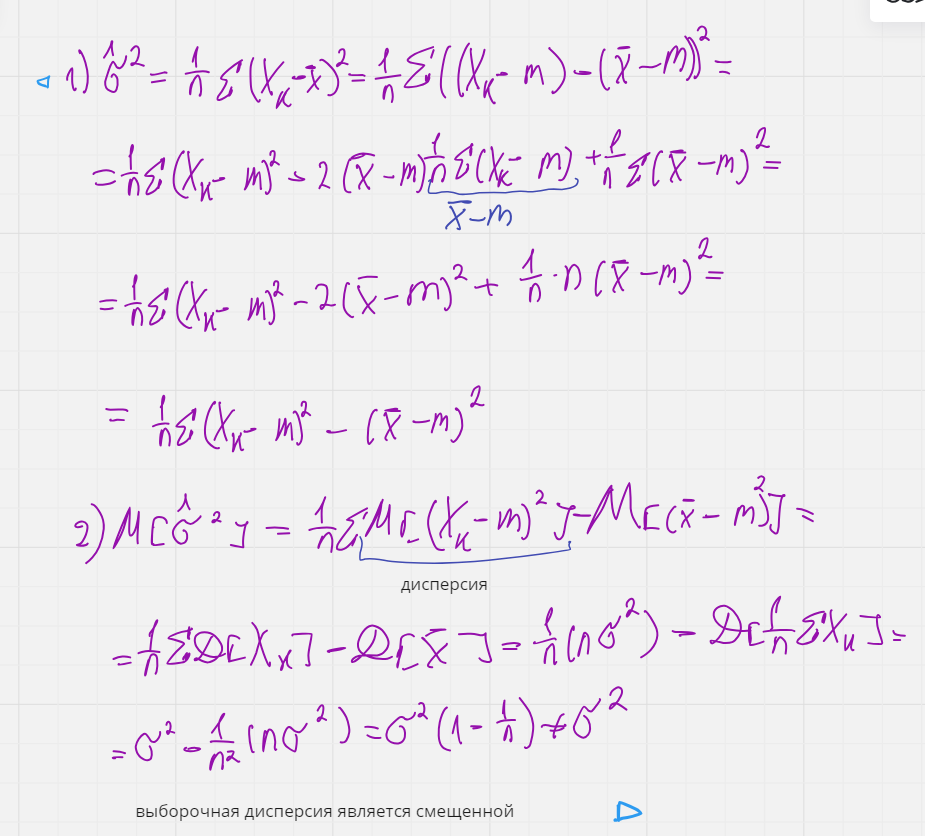 1) σ̂² = 1/n Σ(X_k - x̄)² = 1/n Σ((X_k - m) - (x̄ - m))² =
= 1/n Σ(X_k - m)² - 2(x̄ - m) 1/n Σ(X_k - m) + 1/n Σ(x̄ - m)² =
x̄ - m
= 1/n Σ(X_k - m)² - 2(x̄ - m)² + 1/n · n (x̄ - m)² =
= 1/n Σ(X_k - m)² - (x̄ - m)²
2) M[σ̂²] = 1/n Σ M[(X_k - m)²] - M[(x̄ - m)²] =
дисперсия
= 1/n Σ D[X_k] - D[x̄] = 1/n (nσ²) - D[1/n ΣX_k] =
= σ² - 1/n² (nσ²) = σ² (1 - 1/n) ≠ σ²
выборочная дисперсия является смещенной